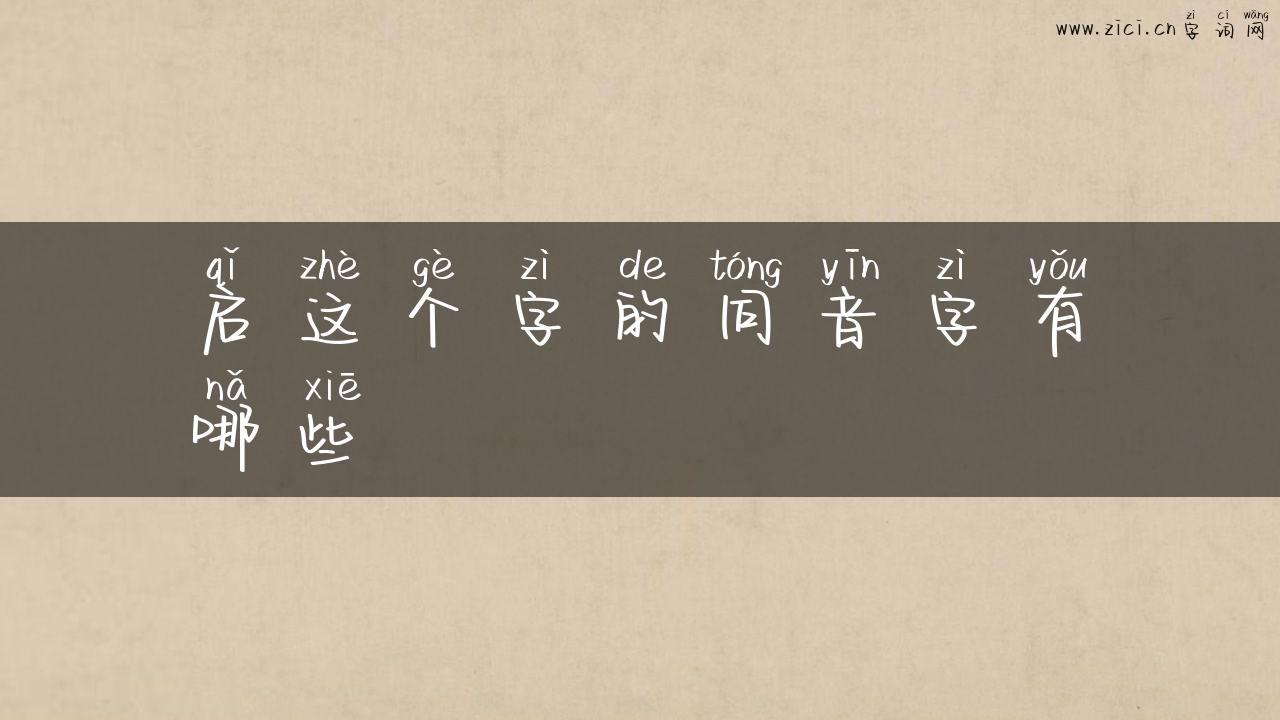 zì cí wǎng
www.zici.cn 字词网
qǐ zhè gè zì de tóng yīn zì yǒu
启这个字的同音字有
nǎ xiē
哪些